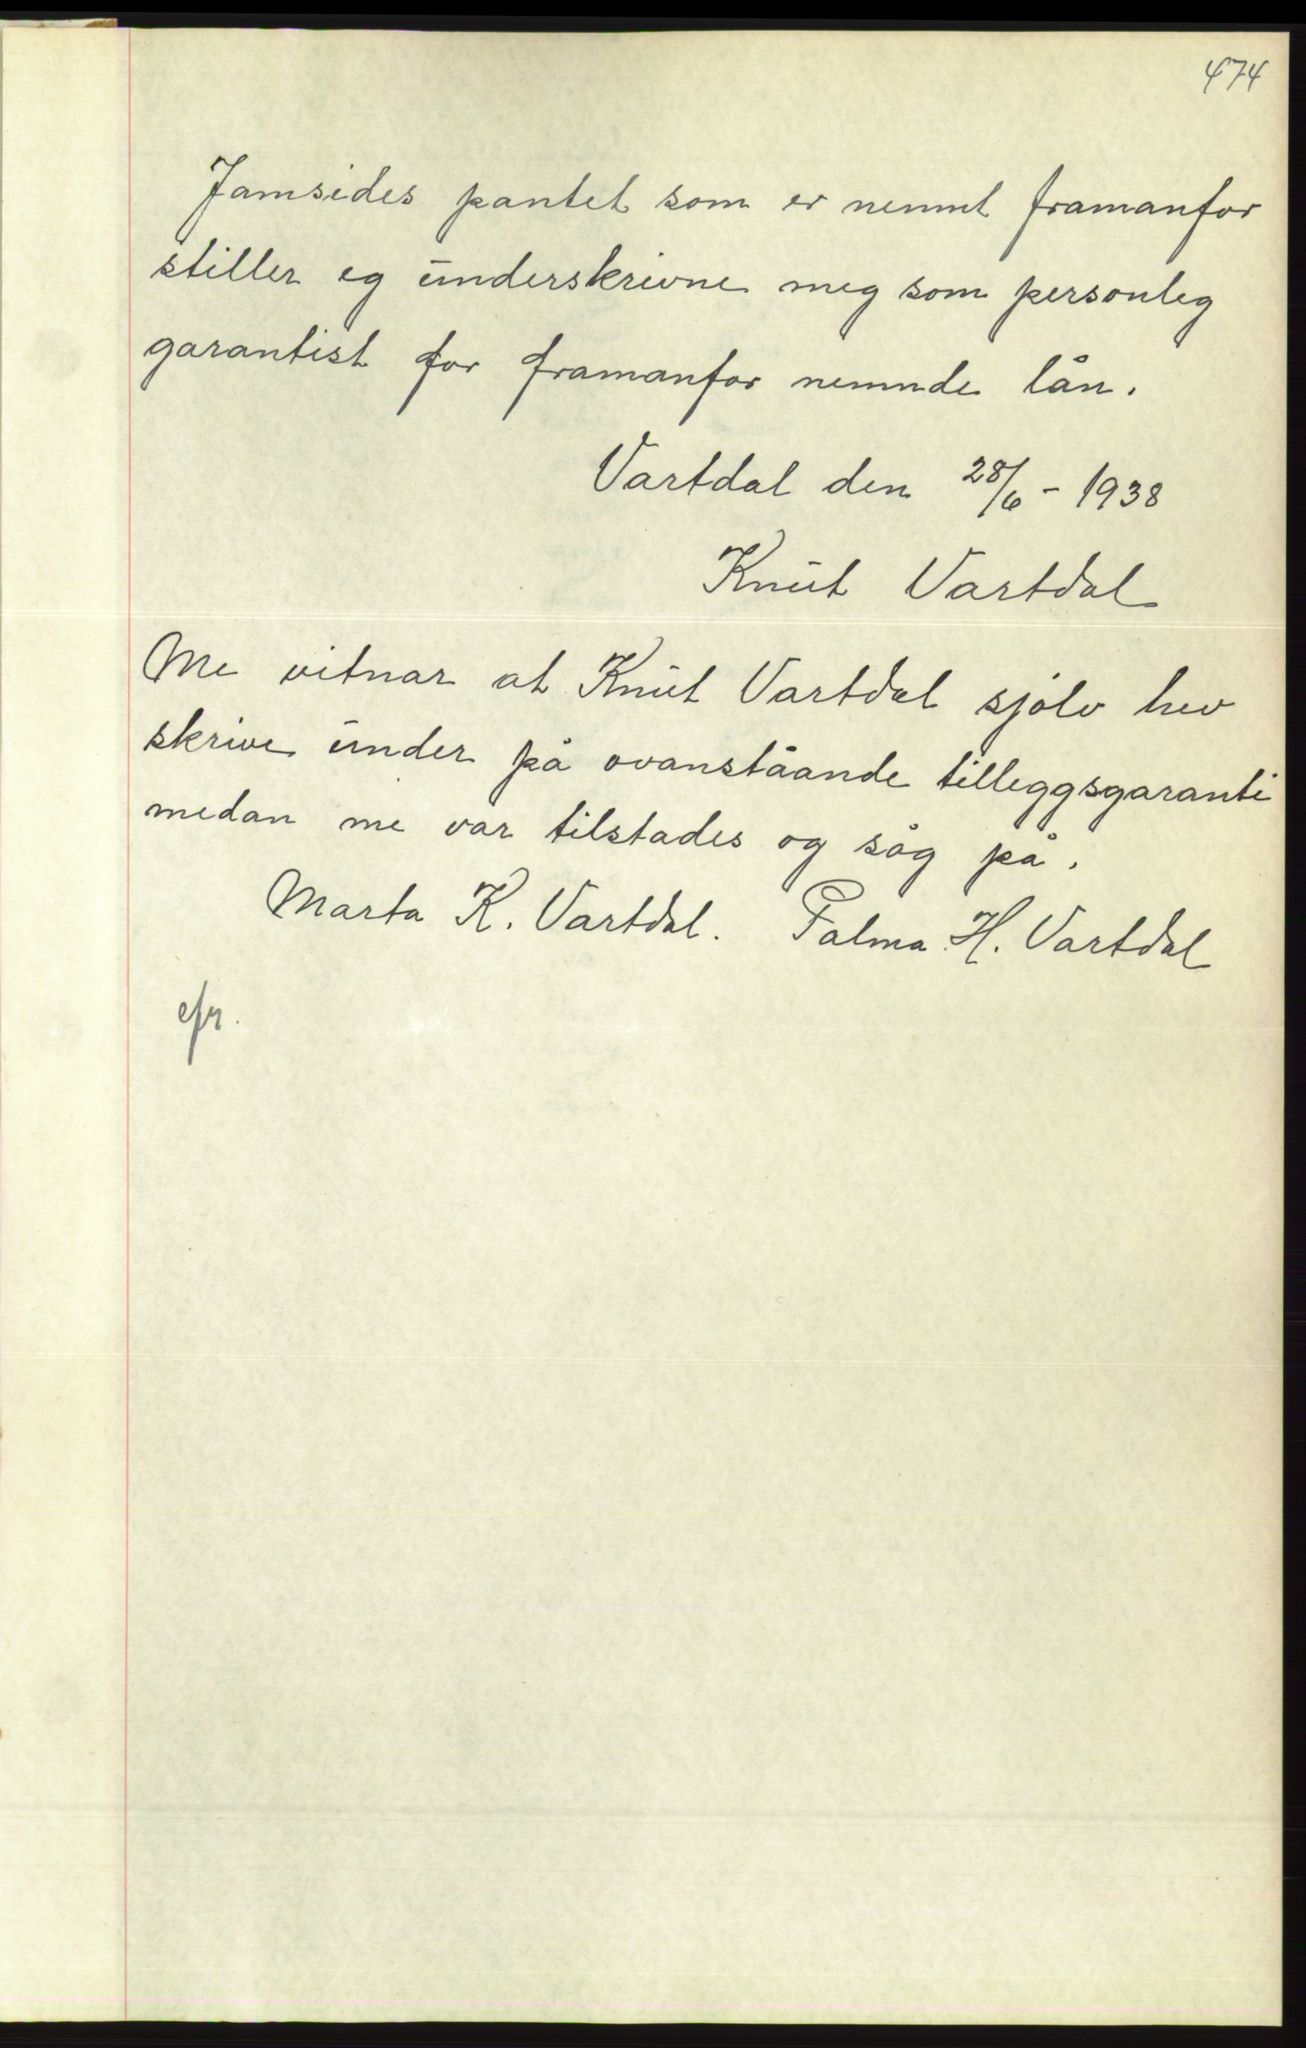 474
Jamsides pantet som er nemnt framanfor
stiller eg underskrivne meg som personleg
garantist for framanfor nemnde lån.
Vartdal den 28/6 - 1938
Knut Vartdal
Me vitnar at Knut Vartdal sjølv hev
skrive under på ovanståande tilleggsgaranti
medan me var tilstades og såg på.
Marta K. Vartdal. Palma H. Vartdal